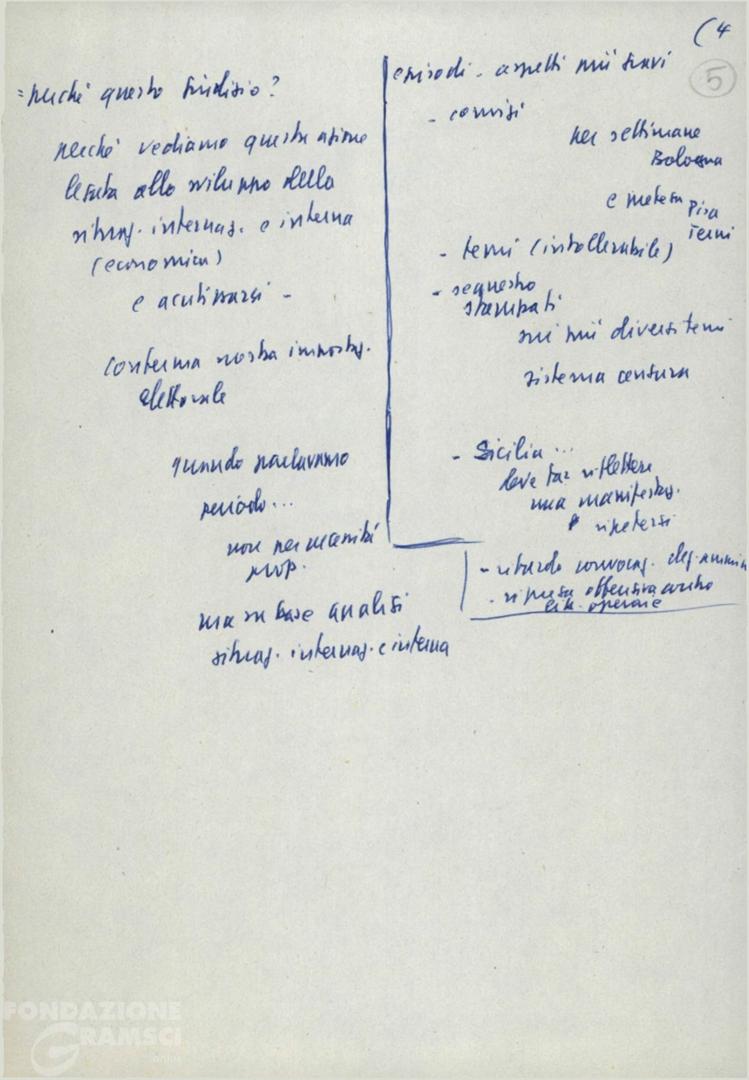 (4
5
= perché questo giudizio?
perché vediamo questa azione
legata allo sviluppo della
situaz. internaz. e interna
(economica)
e acutizzarsi -
conferma nostra impostaz.
elettorale
quando parlavamo
pericolo...
non per necessità
prop.
ma su base analisi
situaz. internaz. e interna
episodi - aspetti più gravi
- comizi
per settimane
Bologna
e intera Pisa
Terni
- temi (intollerabile)
- sequestro
stampati
sui più diversi temi
sistema censura
- Sicilia...
deve far riflettere
una manifestaz.
ripetersi
- ritardo convocaz. el. ammin
- ripresa offensiva contro
lib. operaie
FONDAZIONE
GRAMSCI
online